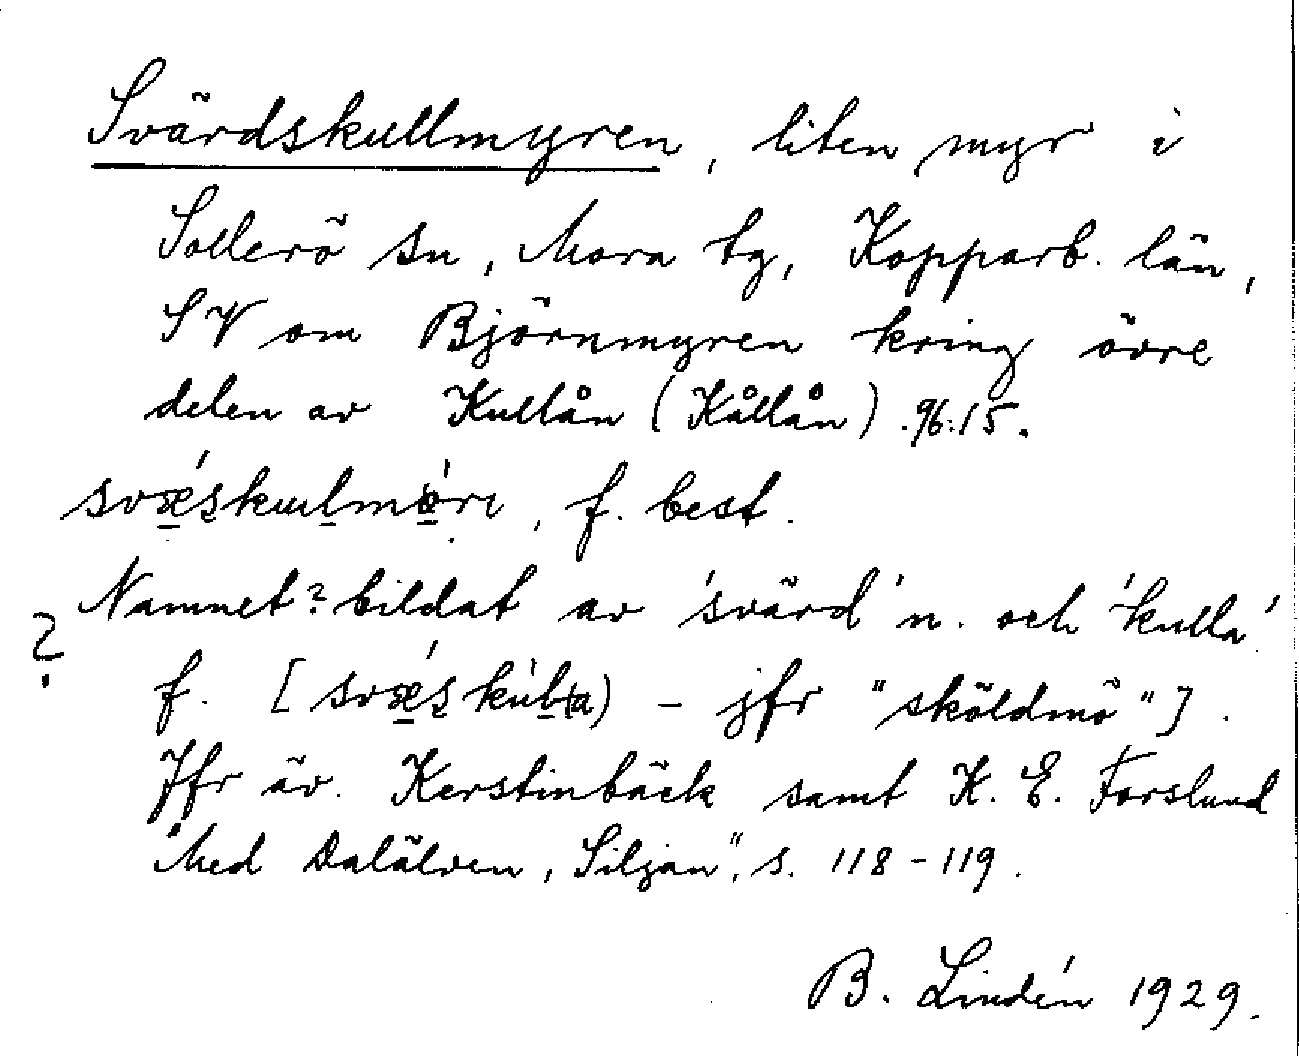 Svärdskullmyren, liten myr i
Sollerö sn, Mora tg, Kopparb. län,
SV om Björnmyren kring övre
delen av Kullån (Kållån). 96:15.
f. best.
Namnet? bildat av 'svärd' n. och 'kulla'
?
f. [ – jfr "sköldmö"].
Jfr äv. Kerstinbäck samt K. E. Forslund
"Med Dalälven, Siljan", s. 118-119.
B. Lindén 1929.